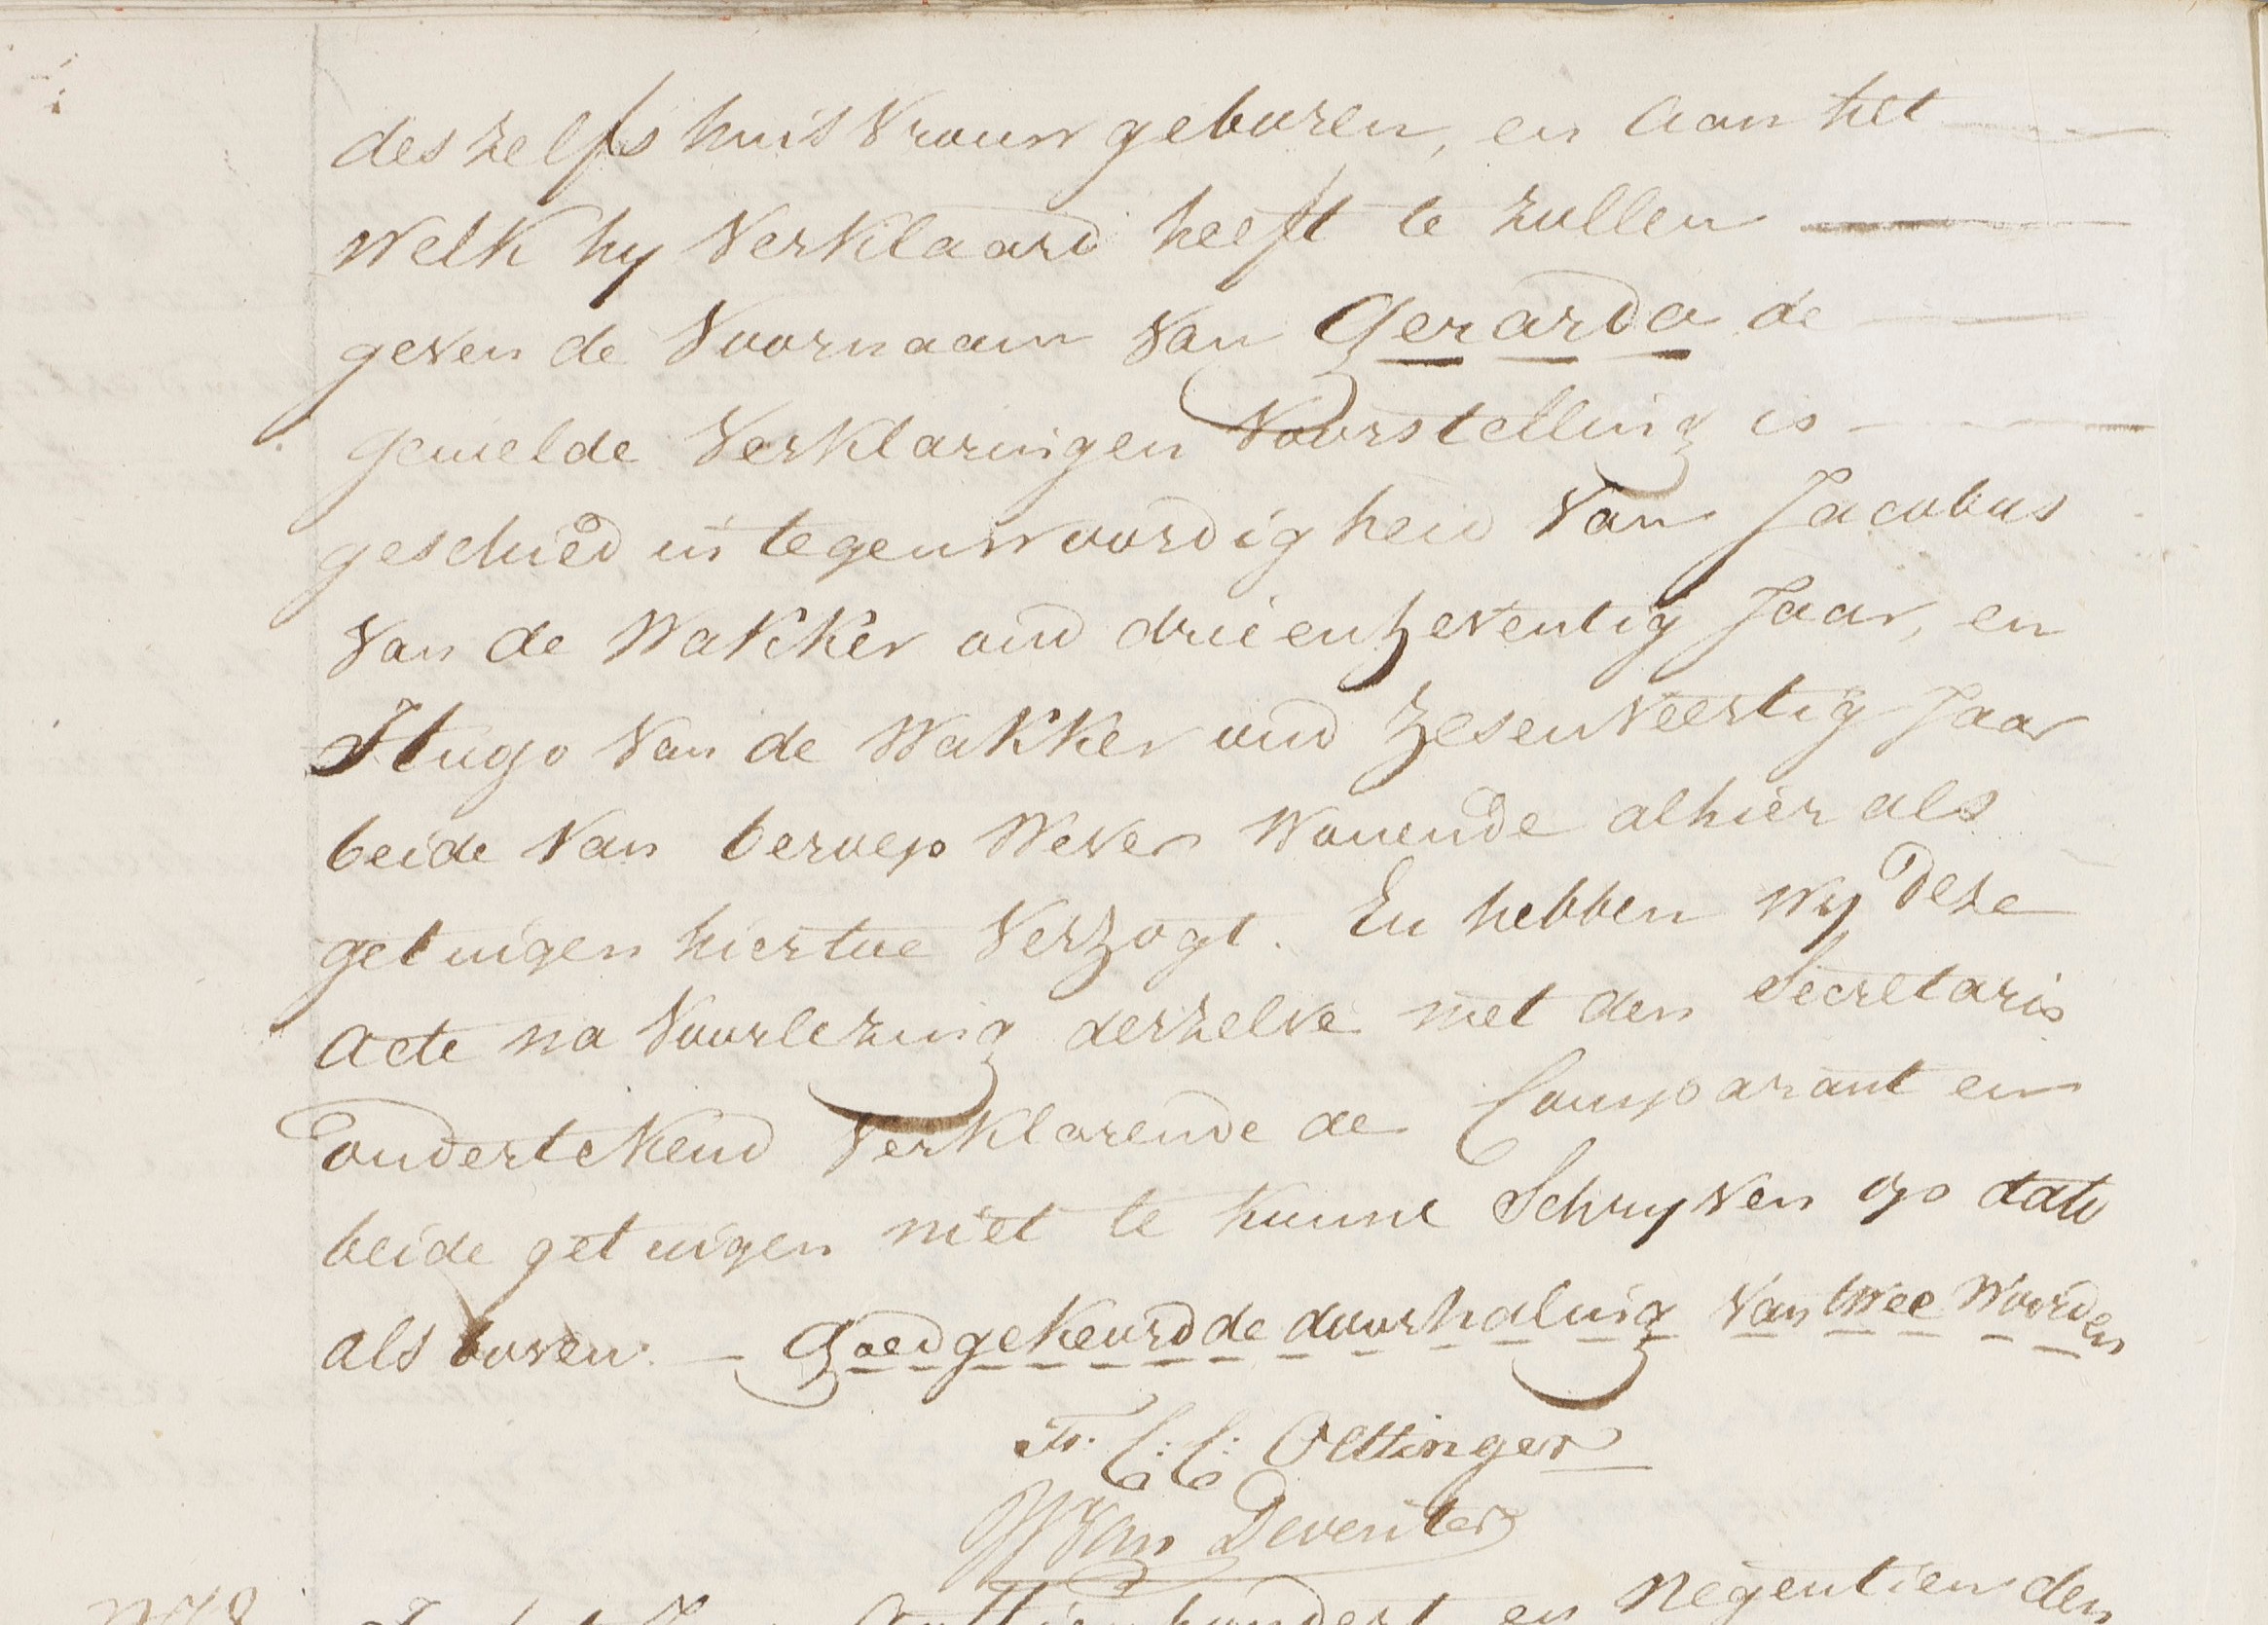 deszelfs huisvrouw geboren, en aan het
welk hy verklaard heeft te zullen
geven de voornaam van Gerarda de
gemelde verklaringen voorstelling is
geschied in tegenwoordigheid van Jacobus
van de Wakker oud drieenzeventig Jaar, en
Hugo van de Wakker oud zesenveertig Jaar
beide van beroep Wever wonende alhier als
getuigen hiertoe verzogt. En hebben wy deze
acte na voorlezing derzelve met den Secretaris
ondertekend verklarende de Comparant en
beide getuigen niet te kunne Schryven op dato
als boven. — Goedgekeurd de doorhaling van twee woorden
Fr. C: C: Oettinger
W van Deventer
N 78
In het Jaar Agttienhondert en negentien den